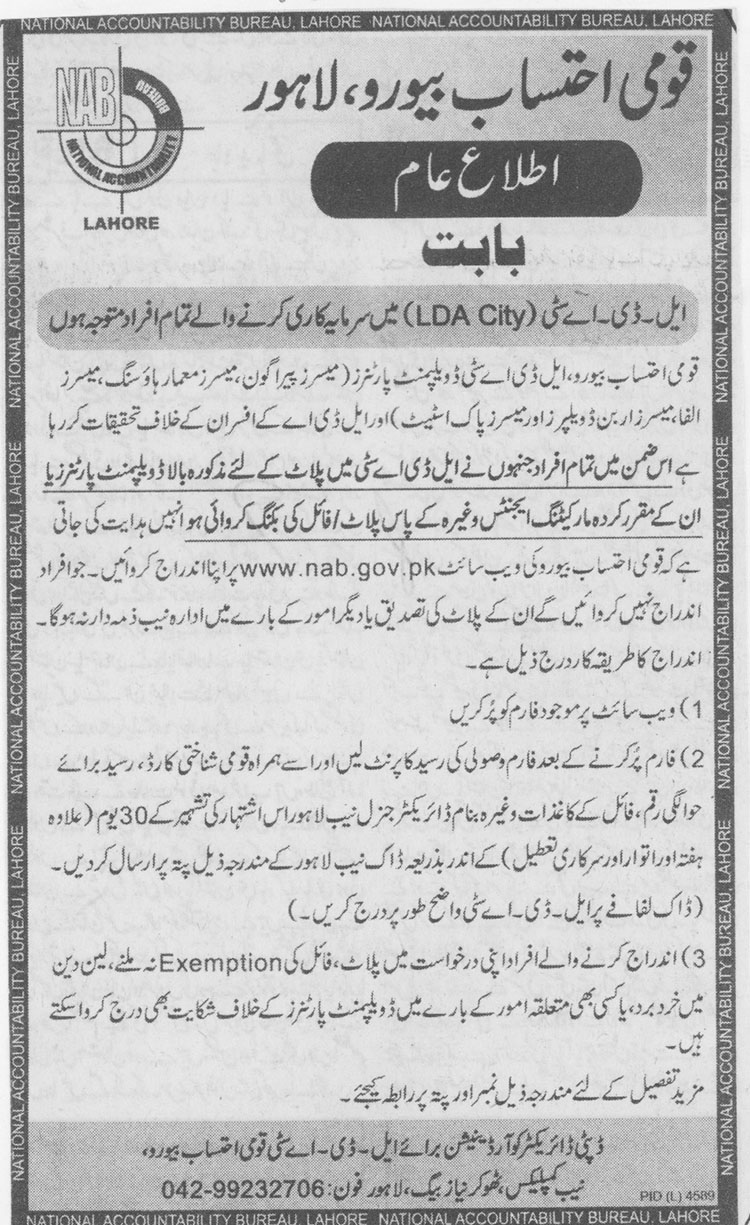 NATIONAL ACCOUNTABILITY BUREAU, LAHORE NATIONAL ACCOUNTABILITY BUREAU, LAHORE
قومی احتساب بیورو، لاہور
NAB
NATIONAL ACCOUNTABILITY BUREAU
LAHORE
اطلاع عام
بابت
ایل۔ڈی۔اے سٹی (LDA City) میں سرمایہ کاری کرنے والے تمام افراد متوجہ ہوں
قومی احتساب بیورو، ایل ڈی اے سٹی ڈویلپمنٹ پارٹنرز (میسرز پیراگون، میسرز معمار ہاؤسنگ، میسرز
الفا، میسرز اربن ڈویلپرز اور میسرز پاک اسٹیٹ) اور ایل ڈی اے کے افسران کے خلاف تحقیقات کر رہا
ہے اس ضمن میں تمام افراد جنہوں نے ایل ڈی اے سٹی میں پلاٹ کے لئے مذکورہ بالا ڈویلپمنٹ پارٹنرز یا
ان کے مقرر کردہ مارکیٹنگ ایجنٹس وغیرہ کے پاس پلاٹ/فائل کی بکنگ کروائی ہو انہیں ہدایت کی جاتی
ہے کہ قومی احتساب بیورو کی ویب سائٹ www.nab.gov.pk پر اپنا اندراج کروائیں۔ جو افراد
اندراج نہیں کروائیں گے ان کے پلاٹ کی تصدیق یا دیگر امور کے بارے میں ادارہ نیب ذمہ دار نہ ہوگا۔
اندراج کا طریقہ کار درج ذیل ہے۔
1) ویب سائٹ پر موجود فارم کو پُر کریں
2) فارم پُر کرنے کے بعد فارم وصولی کی رسید کا پرنٹ لیں اور اسے ہمراہ قومی شناختی کارڈ، رسید برائے
حوالگی رقم، فائل کے کاغذات وغیرہ بنام ڈائریکٹر جنرل نیب لاہور اس اشتہار کی تشہیر کے 30 یوم (علاوہ
ہفتہ اور اتوار اور سرکاری تعطیل) کے اندر بذریعہ ڈاک نیب لاہور کے مندرجہ ذیل پتہ پر ارسال کر دیں۔
(ڈاک لفافے پر ایل۔ڈی۔اے سٹی واضح طور پر درج کریں۔)
3) اندراج کرنے والے افراد اپنی درخواست میں پلاٹ، فائل کی Exemption نہ ملنے، لین دین
میں خرد برد، یا کسی بھی متعلقہ امور کے بارے میں ڈویلپمنٹ پارٹنرز کے خلاف شکایت بھی درج کروا سکتے
ہیں۔
مزید تفصیل کے لئے مندرجہ ذیل نمبر اور پتہ پر رابطہ کیجئے۔
ڈپٹی ڈائریکٹر کوآرڈینیشن برائے ایل۔ڈی۔اے سٹی قومی احتساب بیورو،
نیب کمپلیکس، ٹھوکر نیاز بیگ، لاہور فون: 042-99232706
PID (L) 4589
NATIONAL ACCOUNTABILITY BUREAU, LAHORE NATIONAL ACCOUNTABILITY BUREAU, LAHORE
NATIONAL ACCOUNTABILITY BUREAU, LAHORE NATIONAL ACCOUNTABILITY BUREAU, LAHORE NATIONAL ACCOUNTABILITY BUREAU, LAHORE
NATIONAL ACCOUNTABILITY BUREAU, LAHORE NATIONAL ACCOUNTABILITY BUREAU, LAHORE NATIONAL ACCOUNTABILITY BUREAU, LAHORE